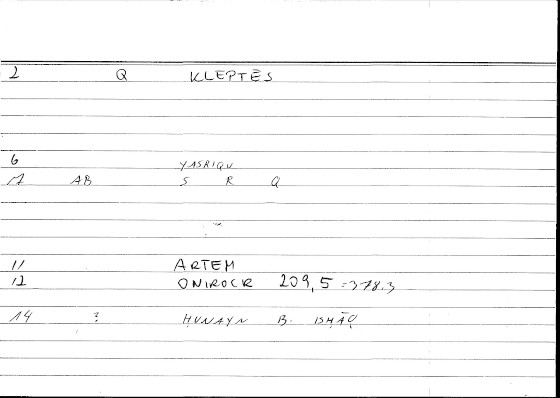 2 Q KLEPTĒS
6 YASRIQU
12 AB S R Q
11 ARTEM
12 ONIROCR 209,5 = 378.3
14 ? ḤUNAYN B. ISḤĀQ